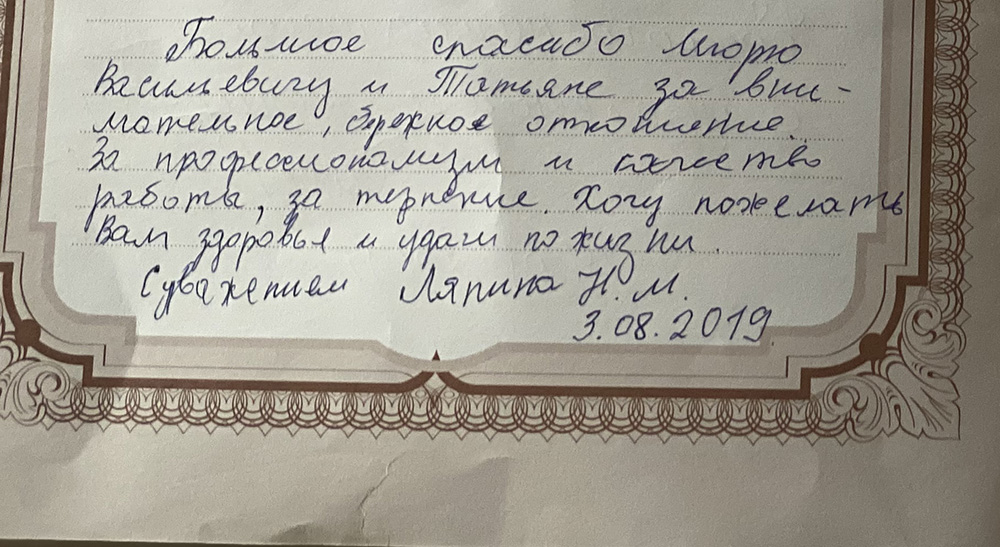 Большое спасибо Игорю
Васильевичу и Татьяне за вни-
мательное, бережное отношение.
За профессионализм и качество
работы, за терпение. Хочу пожелать
Вам здоровья и удачи по жизни.
С уважением Ляпина Н.М.
3.08.2019